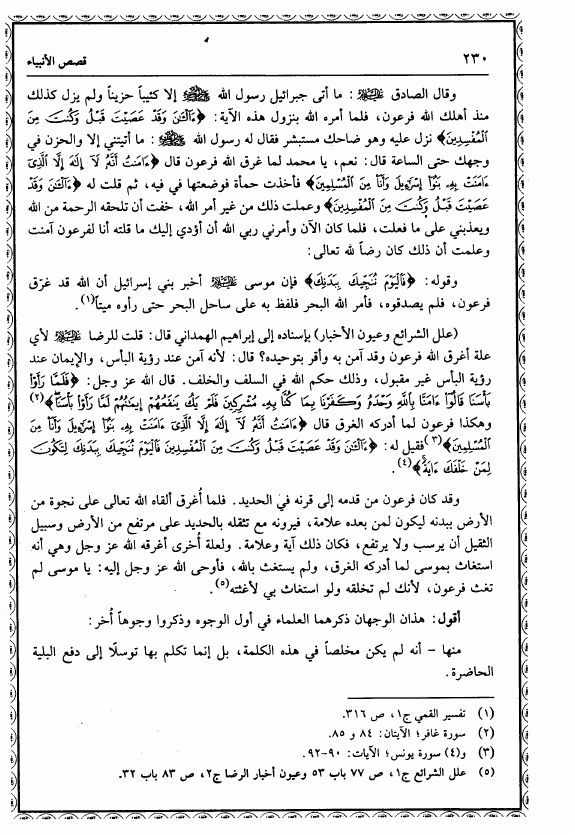 ٢٣٠
قصص الأنبياء
وقال الصادق ﷺ: ما أتى جبرائيل رسول الله ﷺ إلا كئيباً حزيناً ولم يزل كذلك
منذ أهلك الله فرعون، فلما أمره الله بنزول هذه الآية: ﴿ءَآلْـَٰنَ وَقَدْ عَصَيْتَ قَبْلُ وَكُنتَ مِنَ
الْمُفْسِدِينَ﴾ نزل عليه وهو ضاحك مستبشر فقال له رسول الله ﷺ: ما أتيتني إلا والحزن في
وجهك حتى الساعة قال: نعم، يا محمد لما غرق الله فرعون قال ﴿ءَامَنتُ أَنَّهُ لَآ إِلَٰهَ إِلَّا الَّذِىٓ
ءَامَنَتْ بِهِۦ بَنُوٓا إِسْرَٰٓءِيلَ وَأَنَا مِنَ الْمُسْلِمِينَ﴾ فأخذت حمأة فوضعتها في فيه، ثم قلت له ﴿ءَآلْـَٰنَ وَقَدْ
عَصَيْتَ قَبْلُ وَكُنتَ مِنَ الْمُفْسِدِينَ﴾ وعملت ذلك من غير أمر الله، خفت أن تلحقه الرحمة من الله
ويعذبني على ما فعلت، فلما كان الآن وأمرني ربي الله أن أؤدي إليك ما قلته أنا لفرعون آمنت
وعلمت أن ذلك كان رضاً لله تعالى:
وقوله: ﴿فَالْيَوْمَ نُنَجِّيكَ بِبَدَنِكَ﴾ فإن موسى أخبر بني إسرائيل أن الله قد غرّق
فرعون، فلم يصدقوه، فأمر الله البحر فلفظ به على ساحل البحر حتى رأوه ميتاً(١).
(علل الشرائع وعيون الأخبار) بإسناده إلى إبراهيم الهمداني قال: قلت للرضا لأي
علة أغرق الله فرعون وقد آمن به وأقر بتوحيده؟ قال: لأنه آمن عند رؤية البأس، والإيمان عند
رؤية البأس غير مقبول، وذلك حكم الله في السلف والخلف. قال الله عز وجل: ﴿فَلَمَّا رَأَوْا
بَأْسَنَا قَالُوٓا ءَامَنَّا بِاللَّهِ وَحْدَهُ وَكَفَرْنَا بِمَا كُنَّا بِهِۦ مُشْرِكِينَ فَلَمْ يَكُ يَنفَعُهُمْ إِيمَٰنُهُمْ لَمَّا رَأَوْا بَأْسَنَا﴾(٢)
وهكذا فرعون لما أدركه الغرق قال ﴿ءَامَنتُ أَنَّهُ لَآ إِلَٰهَ إِلَّا الَّذِىٓ ءَامَنَتْ بِهِۦ بَنُوٓا إِسْرَٰٓءِيلَ وَأَنَا مِنَ
الْمُسْلِمِينَ﴾(٣) فقيل له: ﴿ءَآلْـَٰنَ وَقَدْ عَصَيْتَ قَبْلُ وَكُنتَ مِنَ الْمُفْسِدِينَ فَالْيَوْمَ نُنَجِّيكَ بِبَدَنِكَ لِتَكُونَ
لِمَنْ خَلْفَكَ ءَايَةً﴾(٤).
وقد كان فرعون من قدمه إلى قرنه في الحديد. فلما أُغرق ألقاه الله تعالى على نجوة من
الأرض ببدنه ليكون لمن بعده علامة، فيرونه مع تثقله بالحديد على مرتفع من الأرض وسبيل
الثقيل أن يرسب ولا يرتفع، فكان ذلك آية وعلامة. ولعلة أُخرى أغرقه الله عز وجل وهي أنه
استغاث بموسى لما أدركه الغرق، ولم يستغث بالله، فأوحى الله عز وجل إليه: يا موسى لم
تغث فرعون، لأنك لم تخلقه ولو استغاث بي لأغثته(٥).
أقول: هذان الوجهان ذكرهما العلماء في أول الوجوه وذكروا وجوهاً أُخر:
منها - أنه لم يكن مخلصاً في هذه الكلمة، بل إنما تكلم بها توسلًا إلى دفع البلية
الحاضرة.
(١) تفسير القمي ج١، ص ٣١٦.
(٢) سورة غافر؛ الآيتان: ٨٤ و ٨٥.
(٣) و(٤) سورة يونس؛ الآيات: ٩٠-٩٢.
(٥) علل الشرائع ج١، ص ٧٧ باب ٥٣ وعيون أخبار الرضا ج٢، ص ٨٣ باب ٣٢.